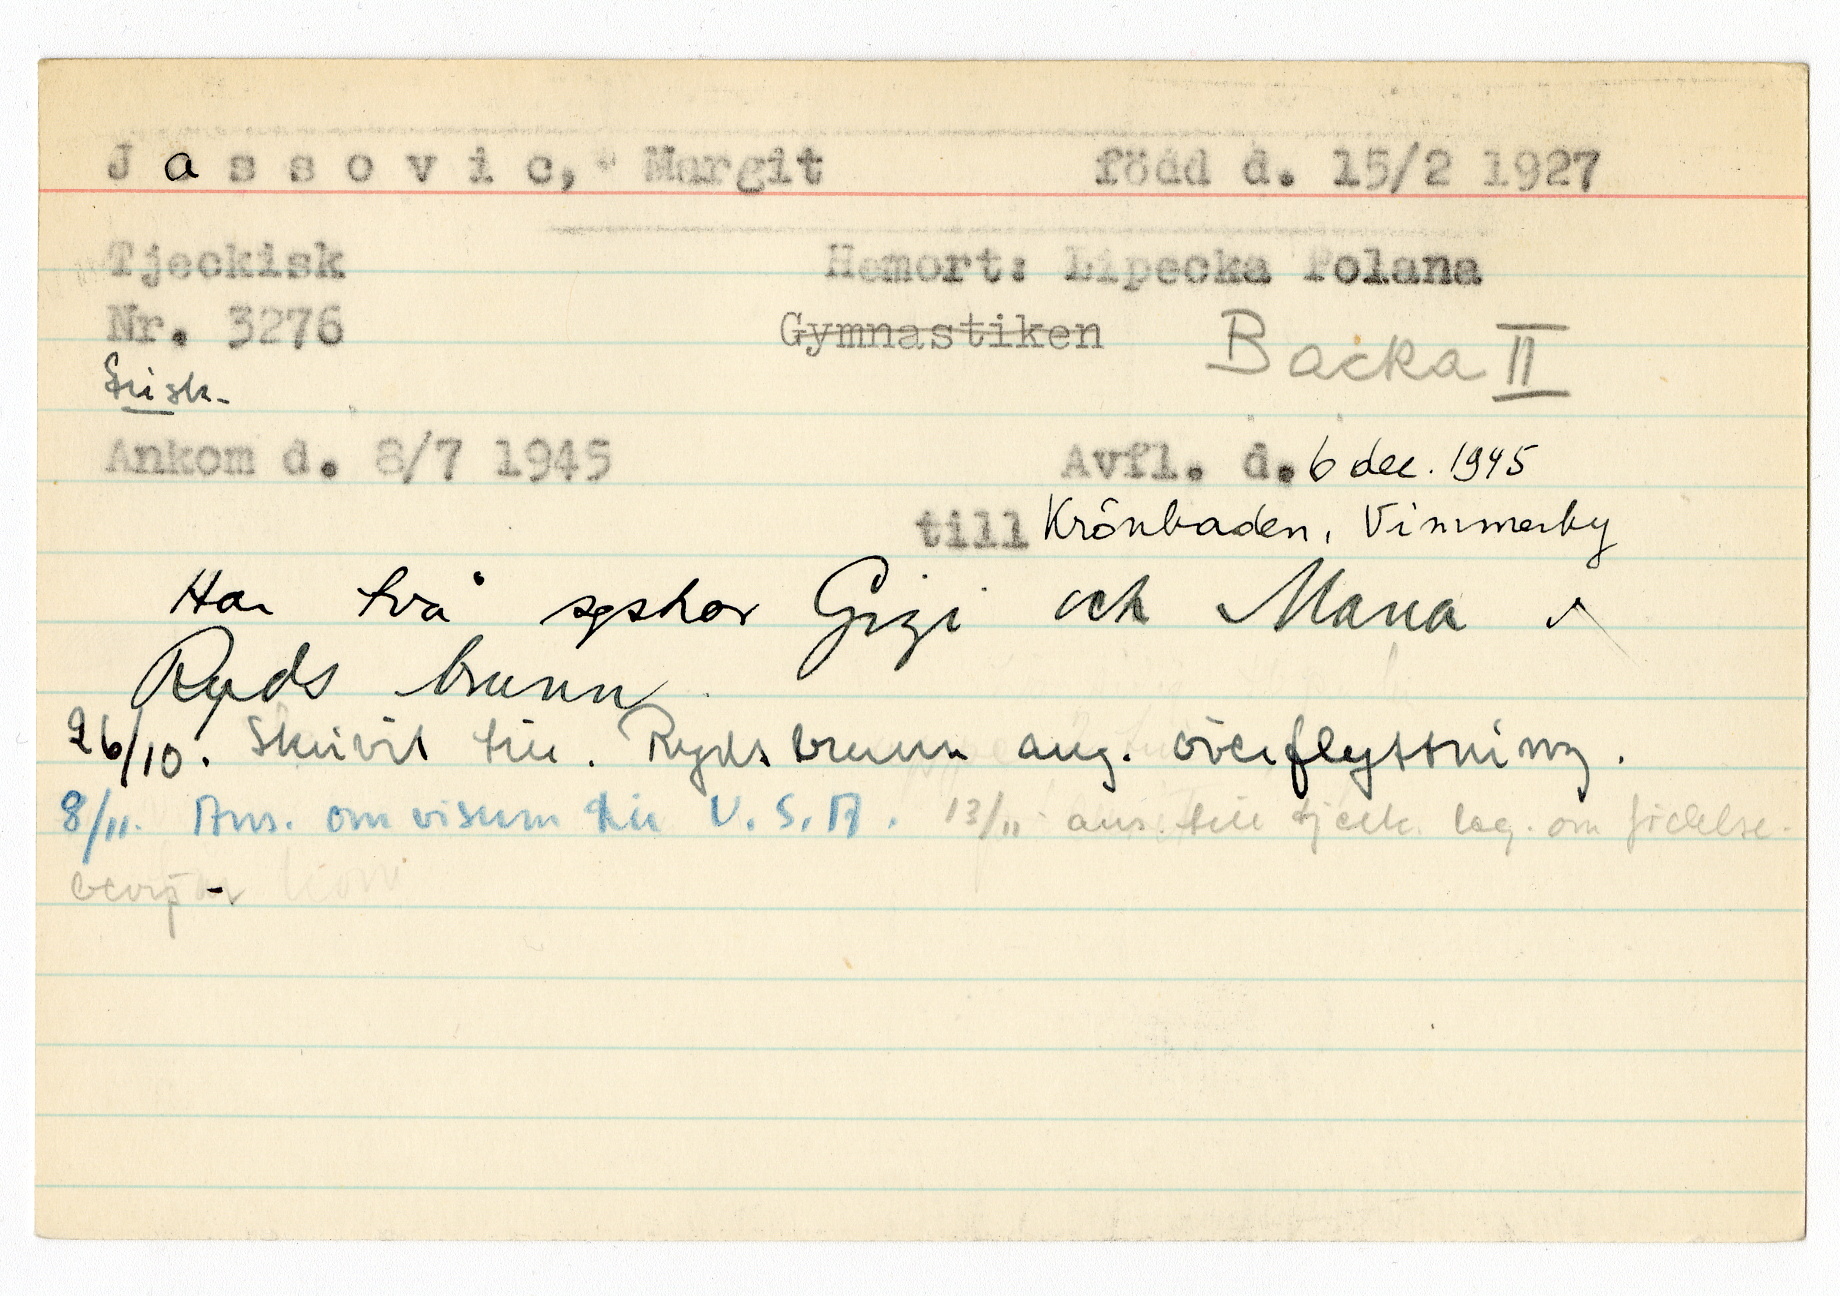 Jassovic, Margit född d. 15/2 1927
Tjeckisk Hemort: Lipecka Polana
Nr. 3276 Gymnastiken Backa II
Frisk.
Ankom d. 8/7 1945 Avfl. d. 6 dec. 1945
till Krönbaden, Vimmerby
Har två systrar Gizi och Maria i
Ryds brunn.
26/10. Skrivit till. Ryds brunn ang. överflyttning.
8/11. Ans. om visum till U.S.A. 13/11 ans. till tjeck. leg. om födelse-
bevis